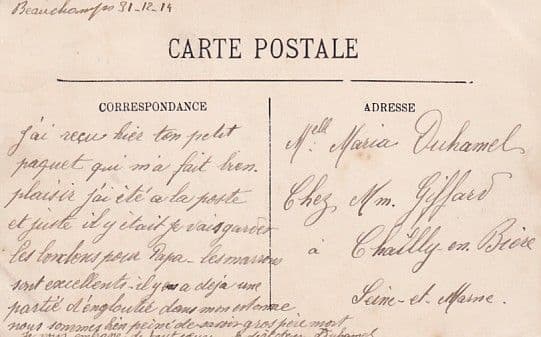 Beauchamps 31-12-14
CARTE POSTALE
CORRESPONDANCE
j'ai reçu hier ton petit
paquet qui m'a fait bien
plaisir j'ai été a la poste
et juste il y était je vais garder
les bonbons pour Papa - les marrons
sont excellents - il y en a déja une
partie d'engloutie dans mon estomac
nous sommes bien peiné de savoir gros père mort
Je vous embrasse de tout coeur Duhamel
ADRESSE
Melle Maria Duhamel
Chez Mm. Giffard
à Chailly en Bière
Seine-et-Marne.